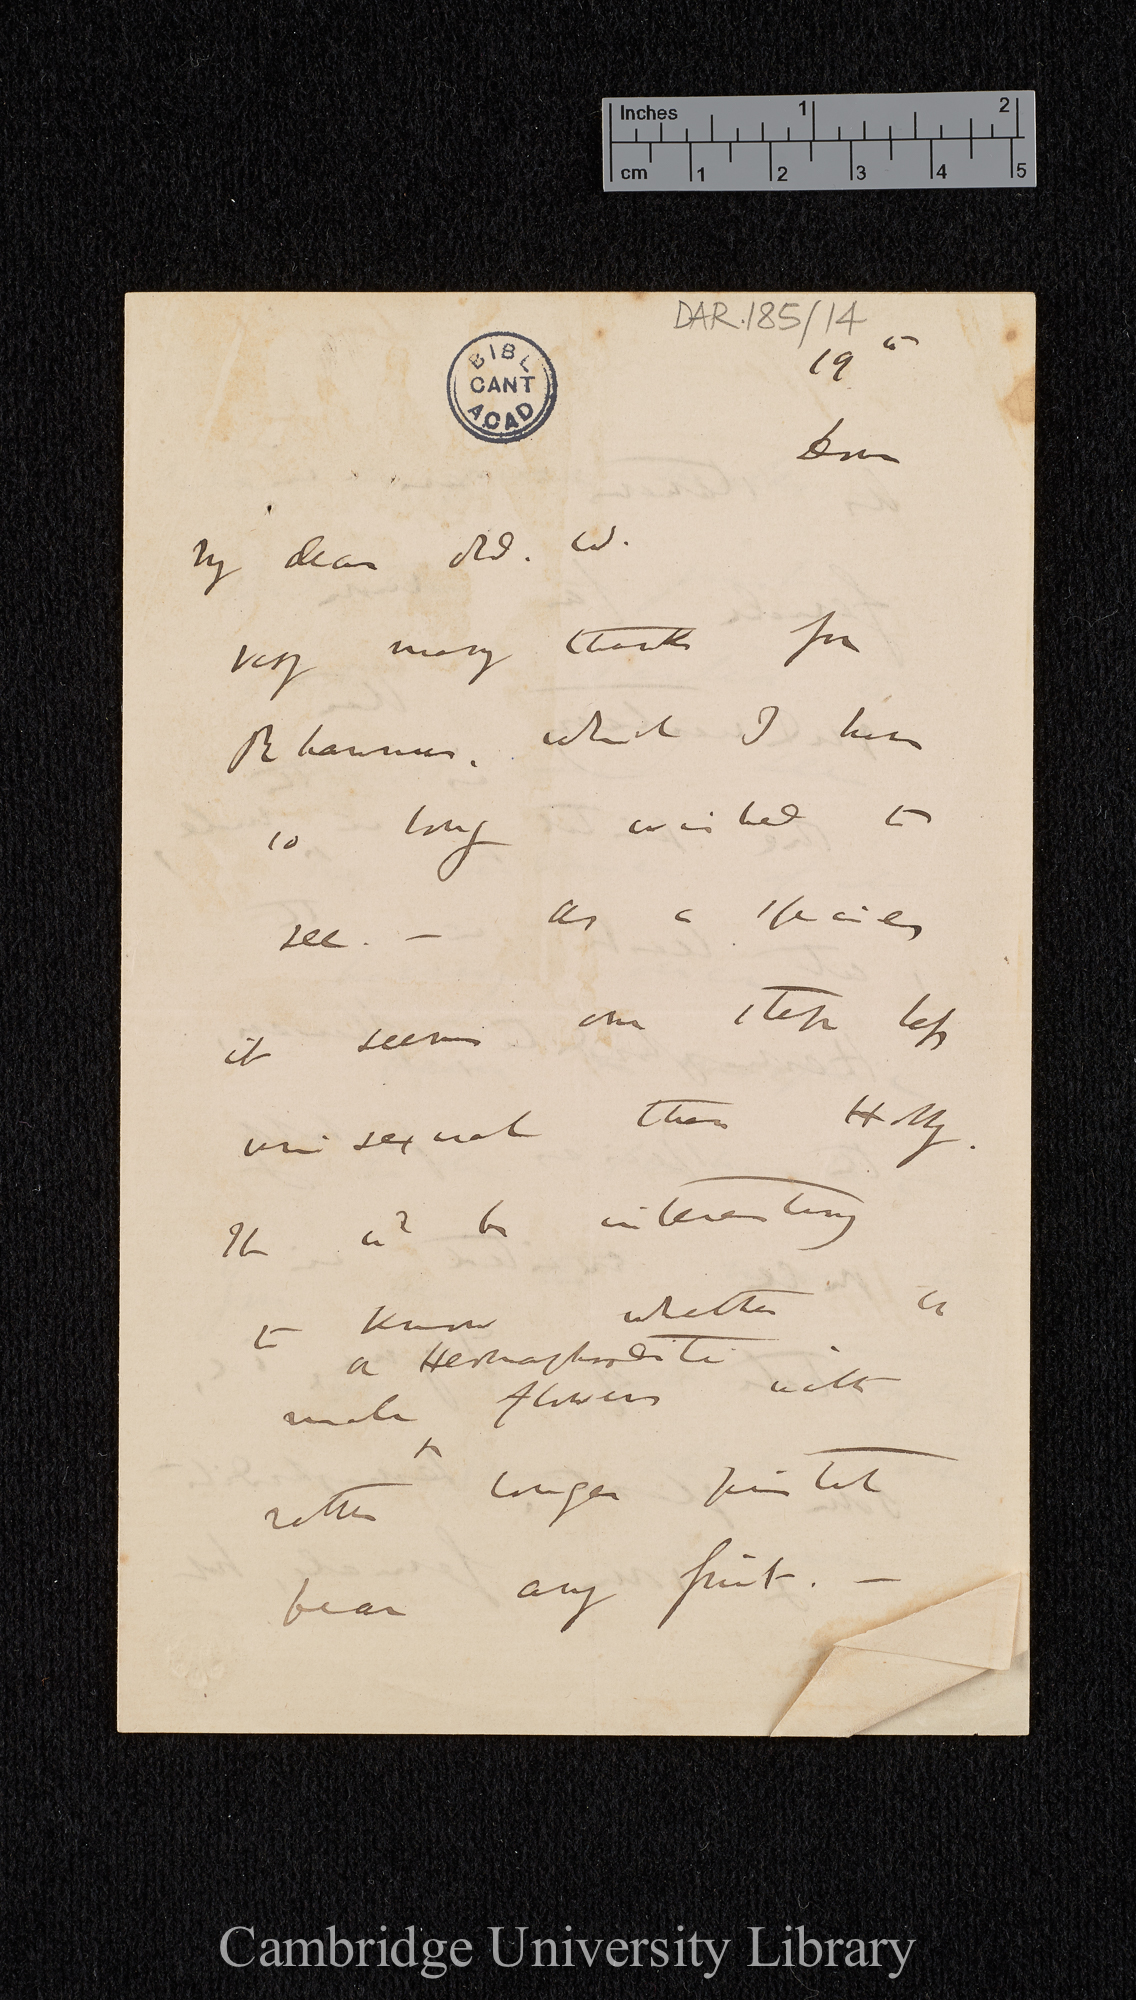 Inches 1 2
cm 1 2 3 4 5
DAR.185/14
BIBL
CANT
ACAD
19th
Down
My dear old. W.
Very many thanks for
Rhamnus, which I have
so long wished to
see. — As a species
it seems one step less
unisexual than Holly.
It wd be interesting
to know whether a
a Hermaphrodite
male flowers with
rather longer pistil
bear any fruit. —
Cambridge University Library